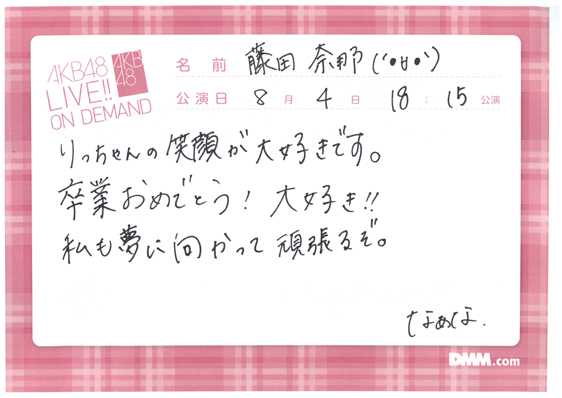 AKB48
LIVE!!
ON DEMAND
AKB
48
名前 藤田 奈那(´•ㅂ•`)
公演日 8月4日 18:15公演
りっちゃんの笑顔が大好きです。
卒業おめでとう! 大好き!!
私も夢に向かって頑張るぞ。
なぁな.
DMM.com